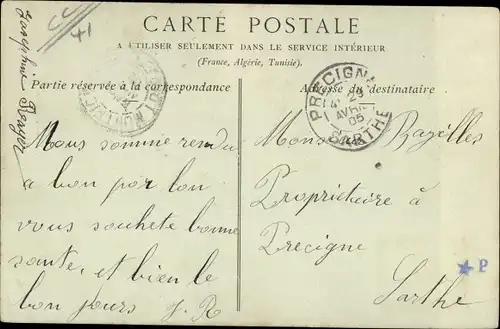 CARTE POSTALE
A UTILISER SEULEMENT DANS LE SERVICE INTÉRIEUR
(France, Algérie, Tunisie).
Partie réservée à la correspondance
Adresse du destinataire
Josephine Renyer
41
Nous somme rendu
a bon por lon
vous souhete bonne
sante, et bien le
bon jours J. R
PRECIGNÉ
23
AVRIL
05
SARTHE
Monsieur Bazilles
Propriétaire à
Precigne
Sarthe
P